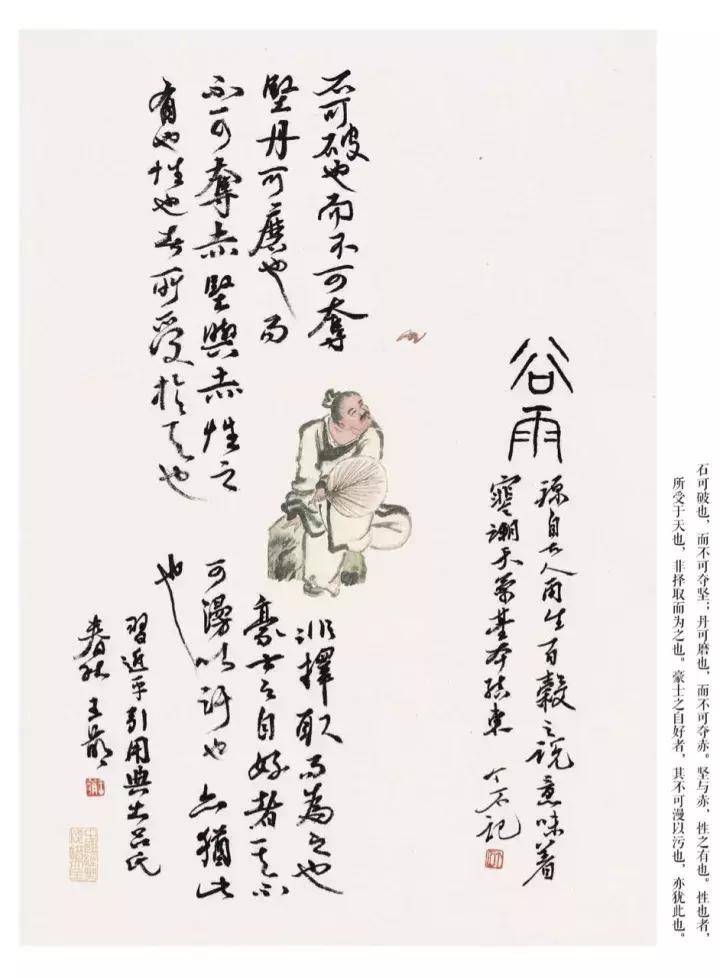 石可破也，而不可夺坚；丹可磨也，而不可夺赤。坚与赤，性之有也。性也者，
所受于天也，非择取而为之也。豪士之自好者，其不可漫以污也，亦犹此也。
谷雨
源自古人雨生百穀之说意味着
寒潮天氣基本结束 个石记
石可破也而不可奪
堅丹可磨也而
不可奪赤堅與赤性之
有也性也者所受於天也
非擇取而為之也
豪士之自好者其不
可漫以汙也亦猶此
也
習近平引用典出呂氏
春秋 王